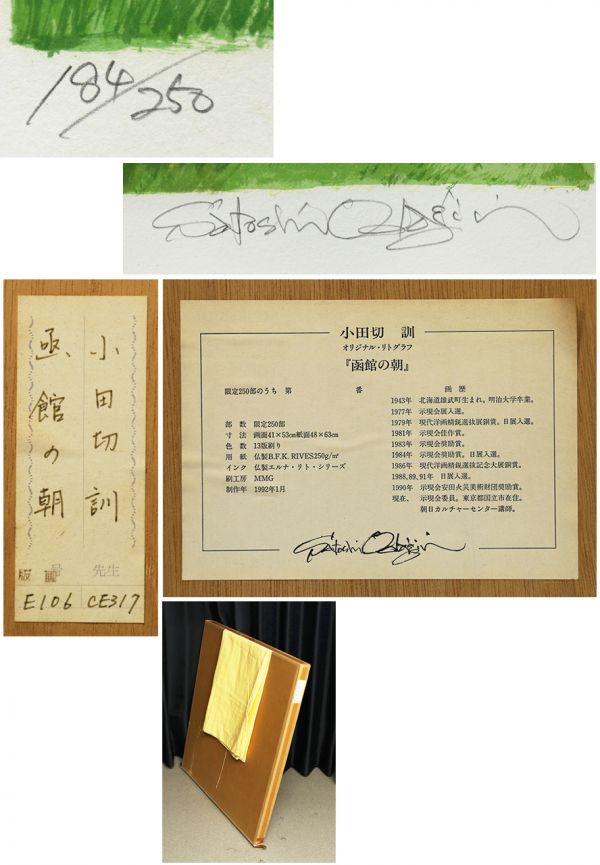 184/250
Satoshi Otagiri
小田切訓
函館の朝
版画
号 先生
E106 CE317
小田切 訓
オリジナル・リトグラフ
『函館の朝』
限定250部のうち 第 番
部 数 限定250部
寸 法 画面41×53cm紙面48×63cm
色 数 13版刷り
用 紙 仏製B.F.K. RIVES250g/㎡
インク 仏製エルナ・リト・シリーズ
刷工房 MMG
制作年 1992年1月
画 歴
1943年 北海道雄武町生まれ。明治大学卒業。
1977年 示現会展入選。
1979年 現代洋画精鋭選抜展銅賞。日展入選。
1981年 示現会佳作賞。
1983年 示現会奨励賞。
1984年 示現会奨励賞。日展入選。
1986年 現代洋画精鋭選抜記念大展銅賞。
1988,89,91年 日展入選。
1990年 示現会安田火災美術財団奨励賞。
現在、 示現会委員。東京都国立市在住。
朝日カルチャーセンター講師。
Satoshi Otagiri